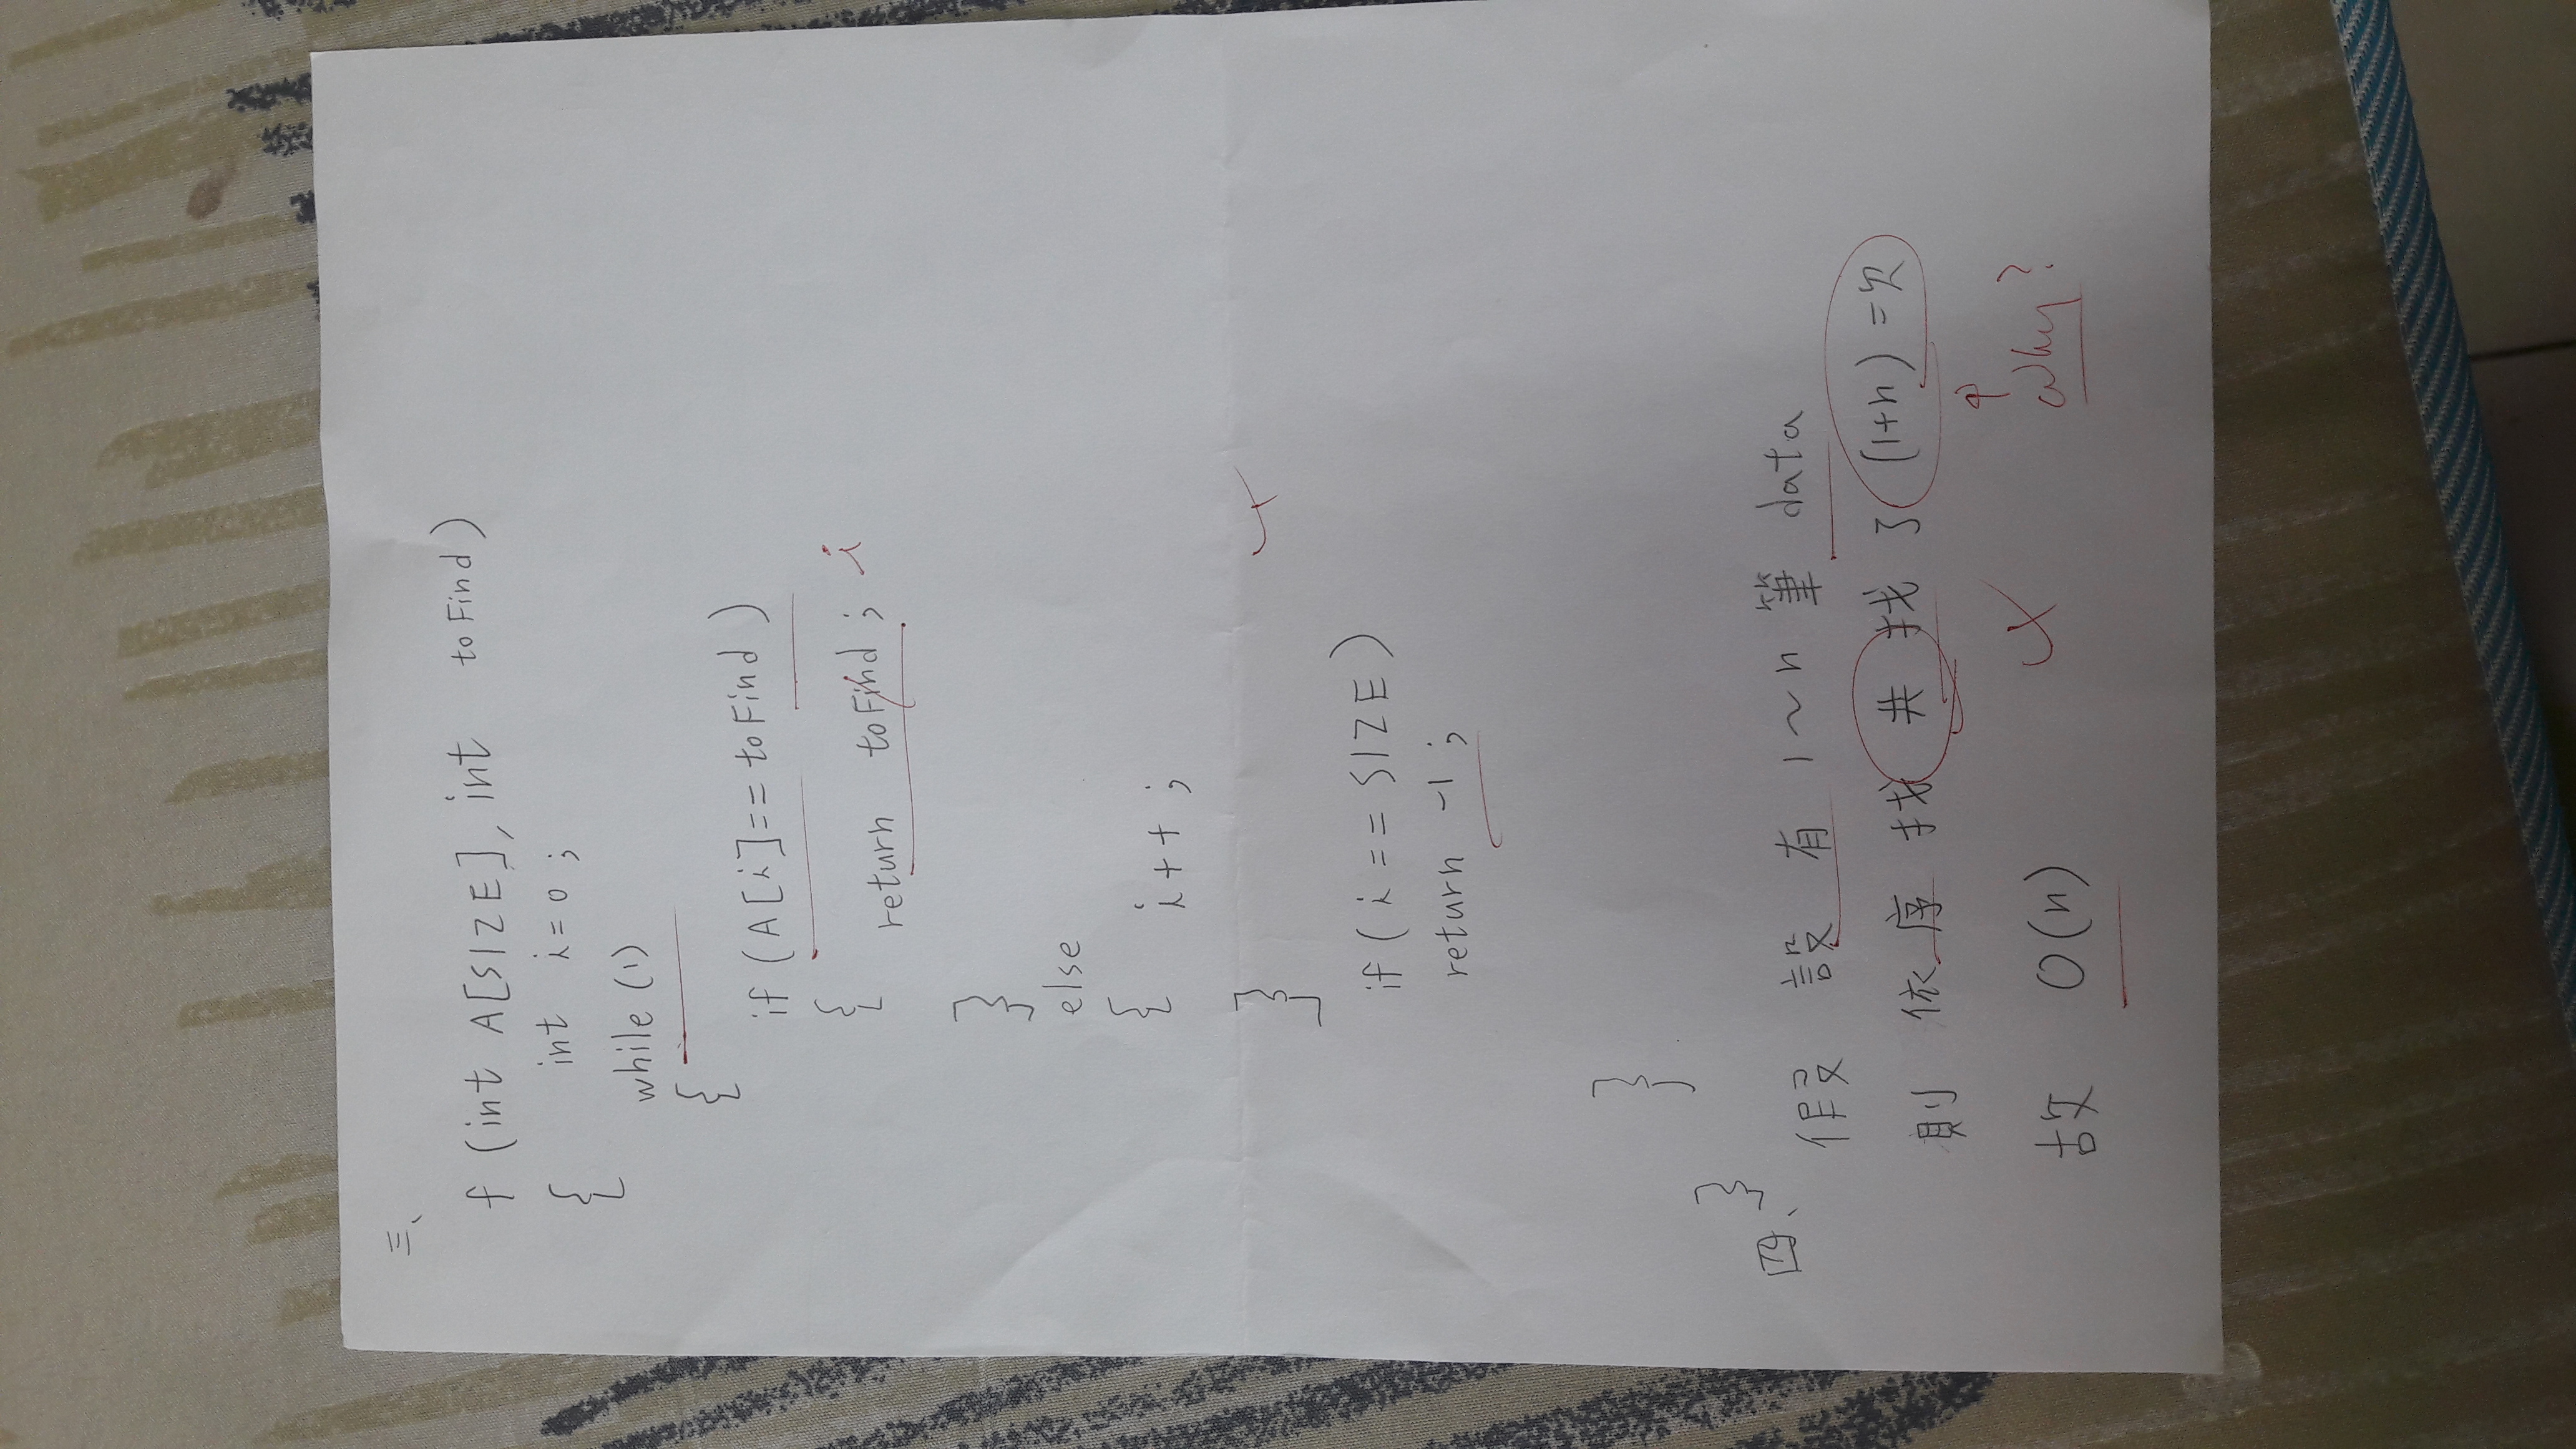 三、
f (int A[SIZE], int toFind)
{ int i=0;
while (1)
{
if (A[i]==toFind)
{
return toFind; i
}
else
{ i++;
}
if (i==SIZE)
return -1;
}
}
四、
假設有1~n筆data
則依序找共找了(1+n)=次
故 O(n)
why?